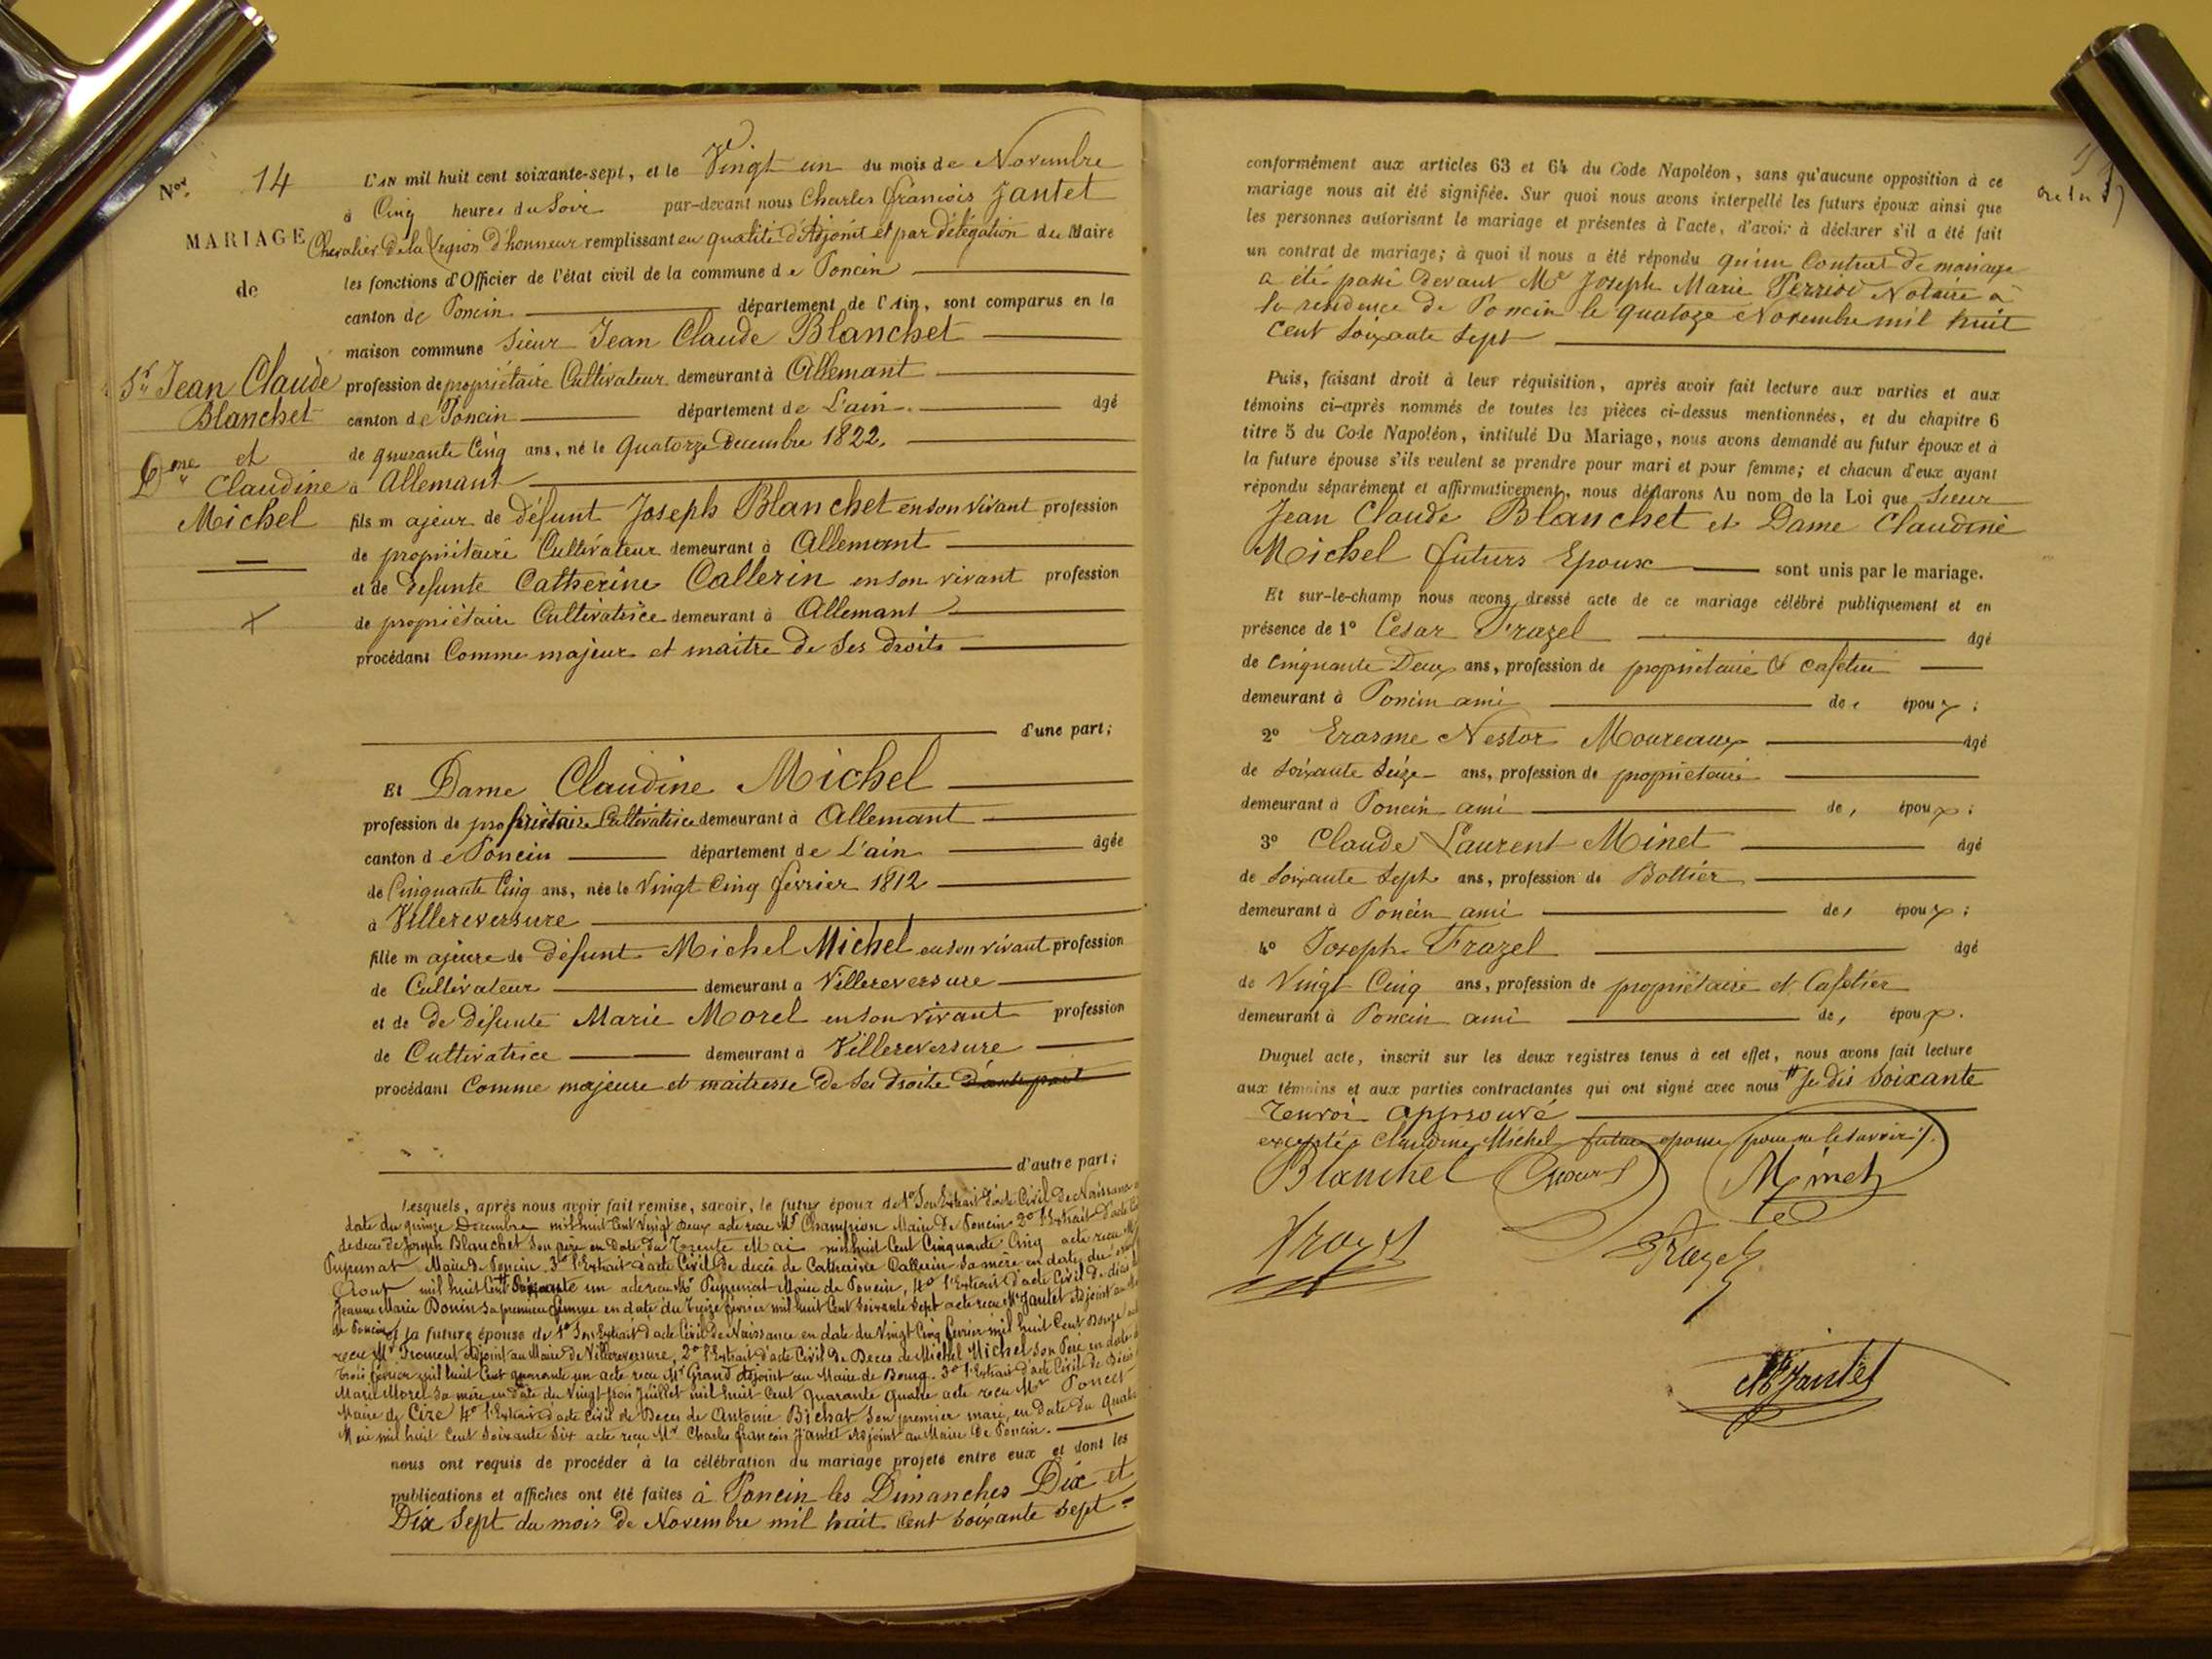 Nos 14
MARIAGE
de
Sr Jean Claude
Blanchet
et
Dme Claudine
Michel
L'AN mil huit cent soixante-sept, et le Vingt un du mois de Novembre
à Cinq heures du Soir par-devant nous Charles françois Jantet
Chevalier de la Légion d'honneur remplissant en qualité d'Adjoint et par délégation du Maire
les fonctions d'Officier de l'état civil de la commune de Poncin
canton de Poncin département de l'Ain, sont comparus en la
maison commune Sieur Jean Claude Blanchet
profession de propriétaire Cultivateur demeurant à Allemant
canton de Poncin département de L'ain. âgé
de quarante Cinq ans, né le Quatorze Decembre 1822.
à Allemant
fils majeur de défunt Joseph Blanchet en son vivant profession
de propriétaire Cultivateur demeurant à Allemant
et de défunte Catherine Callerin en son vivant profession
de propriétaire Cultivatrice demeurant à Allemant
procédant Comme majeur et maitre de ses droits
d'une part;
Et Dame Claudine Michel
profession de propriétaire Cultivatrice demeurant à Allemant
canton de Poncin département de L'ain âgée
de Cinquante Cinq ans, née le Vingt Cinq février 1812
à Villereversure
fille majeure de défunt Michel Michel en son vivant profession
de Cultivateur demeurant à Villereversure
et de de défunte Marie Morel en son vivant profession
de Cultivatrice demeurant à Villereversure
procédant Comme majeure et maitresse de ses droits d'autre part
d'autre part;
Lesquels, après nous avoir fait remise, savoir, le futur époux de 1o Son Extrait d'acte Civil de Naissance
date du quinze Decembre mil huit Cent Vingt deux acte recu Mr Champion Maire de Poncin 2o l'Extrait d'acte
de deces de Joseph Blanchet Son père en date du Trente Mai mil huit Cent Cinquante Cinq acte recu
Maire de Poncin 3o l'Extrait d'acte Civil de décès de Catherine Callerin Sa mère en date du
Aout mil huit Cent Soixante un acte recu Mr Maire de Poncin, 4o l'Extrait d'acte Civil de décès
Jeanne Marie Bonin Sa premiere femme en date du Treize fevrier mil huit Cent Soixante Sept acte recu Mr Jantet Adjoint au
de Poncin et la future épouse de 1o Son Extrait d'acte Civil de Naissance en date du Vingt Cinq fevrier mil huit Cent Douze
recu Mr Froment Adjoint au Maire de Villereversure, 2o l'Extrait d'acte Civil de Deces de Michel Michel Son Père en date
Trois fevrier mil huit Cent quarante un acte recu Mr Grand Adjoint au Maire de Bourg. 3o l'Extrait d'acte Civil de Décès
Marie Morel Sa mère en date du Vingt trois Juillet mil huit Cent Quarante Quatre acte recu Mr Poncet
Maire de Cize 4o l'Extrait d'acte Civil de Deces de Antoine Bichat Son premier mari, en date du
Mai mil huit Cent Soixante Six acte reçu Mr Charles françois Jantet Adjoint au Maire de Poncin.
nous ont requis de procéder à la célébration du mariage projeté entre eux et dont les
publications et affiches ont été faites à Poncin les Dimanches Dix et
Dix Sept du mois de Novembre mil huit Cent Soixante Sept
conformément aux articles 63 et 64 du Code Napoléon, sans qu'aucune opposition à ce
mariage nous ait été signifiée. Sur quoi nous avons interpellé les futurs époux ainsi que
les personnes autorisant le mariage et présentes à l'acte, d'avoir à déclarer s'il a été fait
un contrat de mariage; à quoi il nous a été répondu qu'un Contrat de mariage
a été passé devant Me Joseph Marie Perrier Notaire à
la residence de Poncin le quatoze Novembre mil huit
Cent Soixante Sept
Puis, faisant droit à leur réquisition, après avoir fait lecture aux parties et aux
témoins ci-après nommés de toutes les pièces ci-dessus mentionnées, et du chapitre 6
titre 5 du Code Napoléon, intitulé Du Mariage, nous avons demandé au futur époux et à
la future épouse s'ils veulent se prendre pour mari et pour femme; et chacun d'eux ayant
répondu séparément et affirmativement, nous déclarons Au nom de la Loi que Sieur
Jean Claude Blanchet et Dame Claudine
Michel futurs Epoux sont unis par le mariage.
Et sur-le-champ nous avons dressé acte de ce mariage célébré publiquement et en
présence de 1o Cesar Frazel âgé
de Cinquante Deux ans, profession de propriétaire & cafetier
demeurant à Poncin ami des époux;
2o Erasme Nestor Moureaux âgé
de Soixante Seize ans, profession de propriétaire
demeurant à Poncin ami des époux;
3o Claude Laurent Minet âgé
de Soixante Sept ans, profession de Bottier
demeurant à Poncin ami des époux;
4o Joseph Frazel âgé
de Vingt Cinq ans, profession de propriétaire et Cafetier
demeurant à Poncin ami des époux.
Duquel acte, inscrit sur les deux registres tenus à cet effet, nous avons fait lecture
aux témoins et aux parties contractantes qui ont signé avec nous # Je dis Soixante
Renvoi Approuvé
exceptée Claudine Michel future epouse pour ne le savoir
Blanchet
Minet
Frazel
Frazel
Jantet